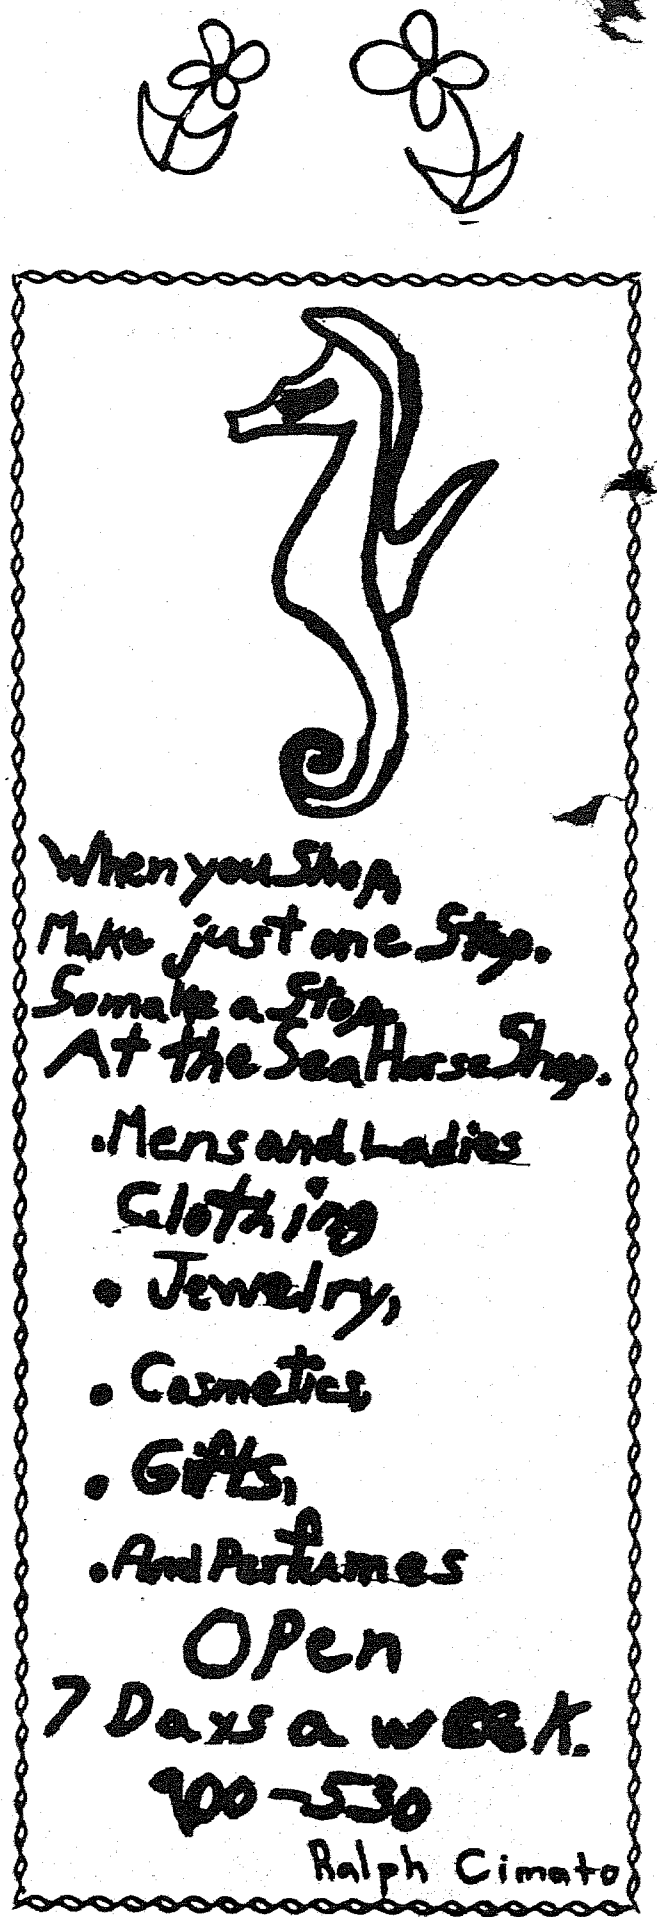 When you Shop
Make just one Stop.
So make a Stop
At the Sea Horse Shop.
• Mens and Ladies
Clothing
• Jewelry,
• Cosmetics,
• Gifts,
• And Perfumes
Open
7 Days a week.
900-530
Ralph Cimato